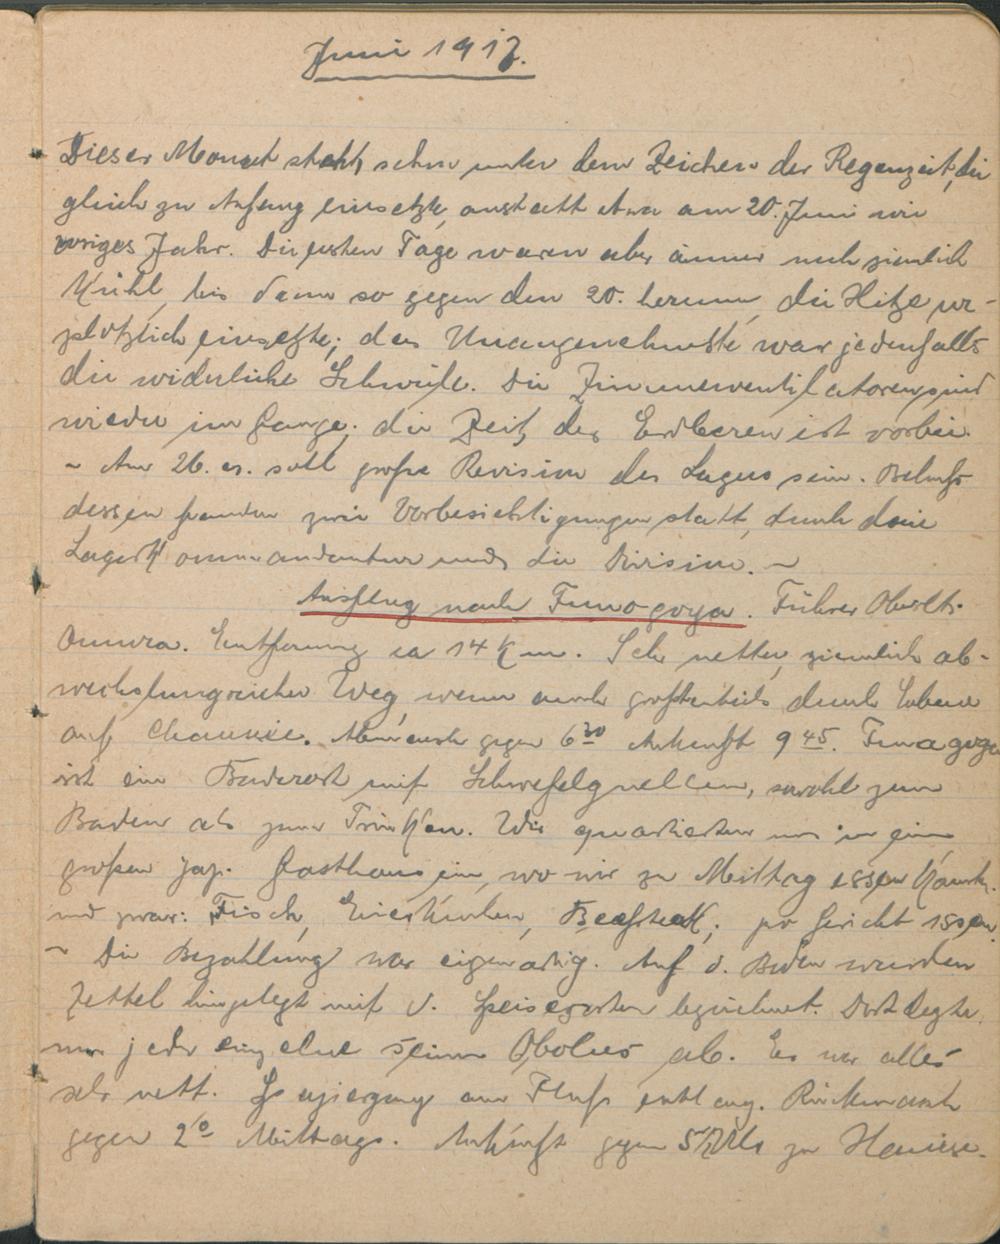 Juni 1917.
Dieser Monat steht schon unter dem Zeichen der Regenzeit, die
gleich zu Anfang einsetzte anstatt etwa am 20. Juni wie
voriges Jahr. Die ersten Tage waren aber immer noch ziemlich
kühl, bis dann so gegen den 20. herum, die Hitze ur-
plötzlich einsetzte; das Unangenehmste war jedenfalls
die widerliche Schwüle. Die Zimmerventilatoren sind
wieder im Gange; die Zeit der Erdbeeren ist vorbei.
- Am 26. er. soll große Revision des Lagers sein. Behufs
dessen fanden zwei Vorbesichtigungen statt, durch die
Lagerkommandantur und die Division. -
Ausflug nach Funogoya. Führer Oberlt.
Omura. Entfernung ca 14 Km. Sehr netter, ziemlich ab-
wechslungsreicher Weg, wenn auch größtenteils durch Ebene
auf Chaussee. Abmarsch gegen 6 30 Ankunft 9 45. Funagoya
ist ein Badeort mit Schwefelquellen, sowohl zum
Baden als zum Trinken. Wir quartierten uns in einem
großen jap. Gasthaus ein, wo wir zu Mittag essen
und zwar: Fisch, Eierkuchen, Beefsteak; pro Gericht 15 sen.
- Die Bezahlung war eigenartig. Auf d. Boden wurden
Zettel hingelegt mit d. Speisesorten bezeichnet. Dort legte
nun jeder einzelne seinen Obolus ab. Es war alles
sehr nett. Spaziergang am Fluß entlang. Rückmarsch
gegen 2 0 Mittags. Ankunft gegen 5 1/2 Uhr zu Hause.